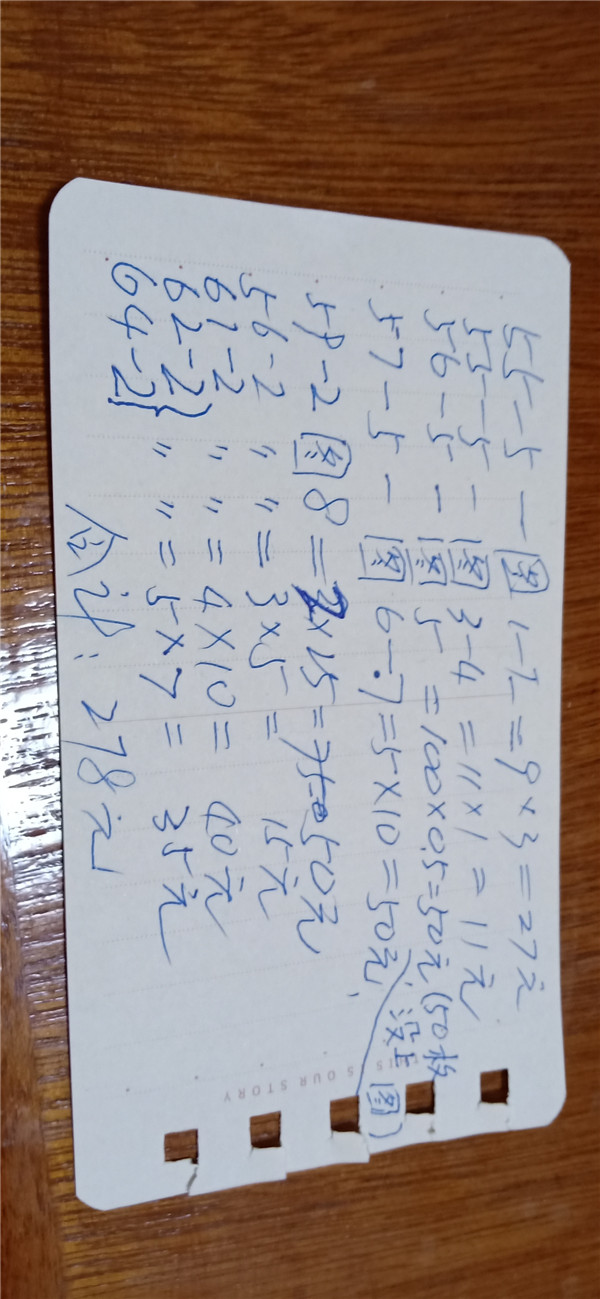 55-5-图1-2=9×3=27元
55-5-图3-4=11×1=11元
56-5-图5=100×0.5=50元(50枚没上图)
57-5-图6-7=5×10=50元
59-2图8=2×15=50元
56-2 〃 〃=3×5=15元
61-2 〃 〃=4×10=40元
62-2
64-2} 〃 〃=5×7=35元
合计:278元
S OUR STORY